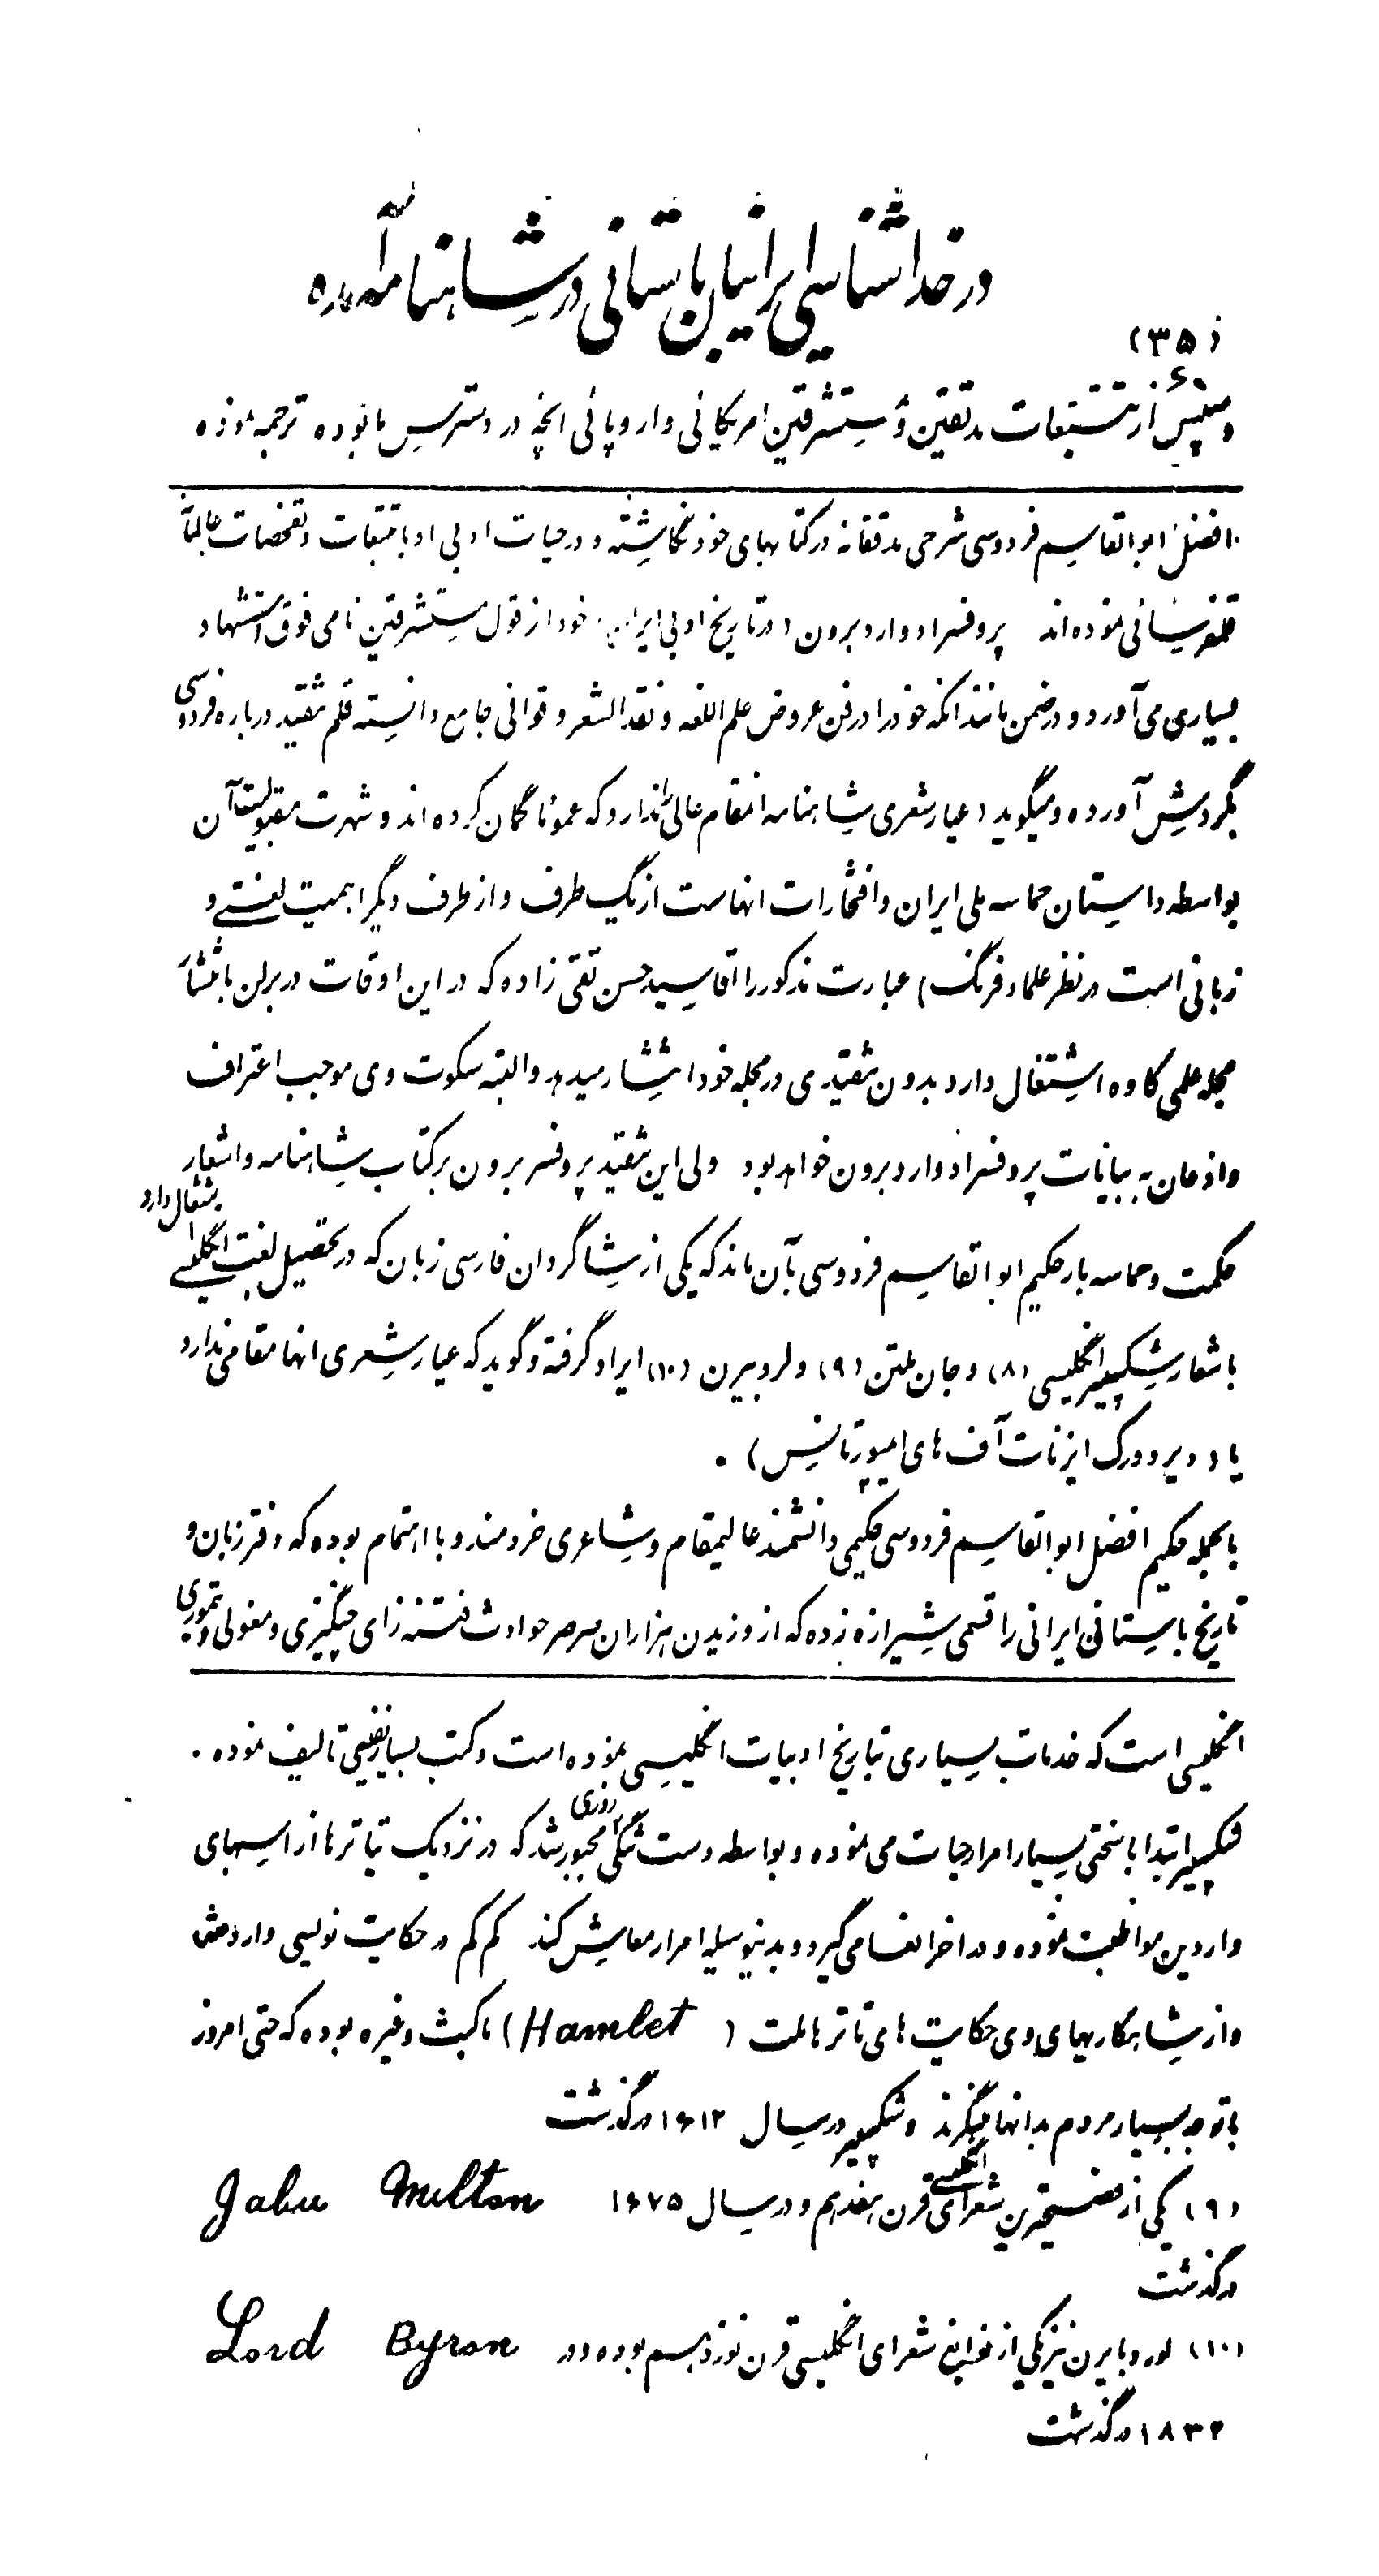 در خداشناسی ایرانیان باستانی در شاهنامه آمده
(۳۵)
و سپس از تتبعات مدققین و مستشرقین امریکائی و اروپائی انچه در دسترس ما بوده ترجمه نموده
افضل ابوالقاسم فردوسی شرحی مدققانه در کتابهای خود نگاشته و در حیات ادبی او با تتبعات و تفحصات عالمانه
قلمفرسائی نموده‌اند پروفسر ادوارد برون (در تاریخ ادبی ایران) خود از قول مستشرقین نامی فوق استشهاد
بسیاری می‌آورد و در ضمن مانند انکه خود را در فن عروض علم اللغه و نقد الشعر و قوافی جامع دانسته قلم تنقید درباره فردوسی
بگردش آورده و میگوید (عیار شعری شاهنامه انمقام عالی را ندارد که عموما گمان کرده‌اند و شهرت مقبولیت آن
بواسطه داستان حماسه ملی ایران و افتخارات انهاست از یک طرف و از طرف دیگر اهمیت لغتی و
زبانی است در نظر علماء فرنگ) عبارت مذکور را اقا سید حسن تقی زاده که در این اوقات در برلن بانتشار
مجله علمی کاوه اشتغال دارد بدون تنقیدی در مجله خود انتشار میدهد و البته سکوت وی موجب اعتراف
و اذعان به بیانات پروفسر ادوارد برون خواهد بود ولی این تنقید پروفسر برون بر کتاب شاهنامه و اشعار
حکمت و حماسه بار حکیم ابوالقاسم فردوسی بآن ماند که یکی از شاگردان فارسی زبان که در تحصیل لغت انگلیسی اشتغال دارد
باشعار شکسپیر انگلیسی (۸) و جان ملتن (۹) و لرد بیرن (۱۰) ایراد گرفته و گوید که عیار شعری انها مقامی ندارد
یا (دیر دورک ایز نات آف های ایمپورتانس) .
بالجمله حکیم افضل ابوالقاسم فردوسی حکیمی دانشمند عالیمقام و شاعری خردمند و با اهتمام بوده که دفتر زبان و
تاریخ باستانی ایرانی را قسمی شیرازه زده که از وزیدن هزاران صرصر حوادث فتنه زای چنگیزی و مغولی و تیموری
انگلیسی است که خدمات بسیاری بتاریخ ادبیات انگلیسی نموده است و کتب بسیار نفیسی تالیف نموده .
شکسپیر ابتدا با سختی بسیار امرار حیات می نموده و بواسطه دست تنگی مجبور شد که روزی در نزدیک تیاترها از اسبهای
واردین مواظبت نموده و در اخر انعامی گیرد و بدینوسیله امرار معاش کند کم کم در حکایت نویسی وارد شد
و از شاهکاریهای وی حکایت های تاتر هاملت (Hamlet) ماکبث و غیره بوده که حتی امروز
باتوجه بسیار مردم بدانها مینگرند و شکسپیر در سال ۱۶۱۲ درگذشت
(۹) یکی از فصیحترین شعرای انگلیسی قرن هفدهم و در سال ۱۶۷۵ Milton Jahn
درگذشت
(۱۰) لورد بایرن نیز یکی از نوابغ شعرای انگلیسی قرن نوزدهم بوده و در Lord Byron
۱۸۳۲ درگذشت